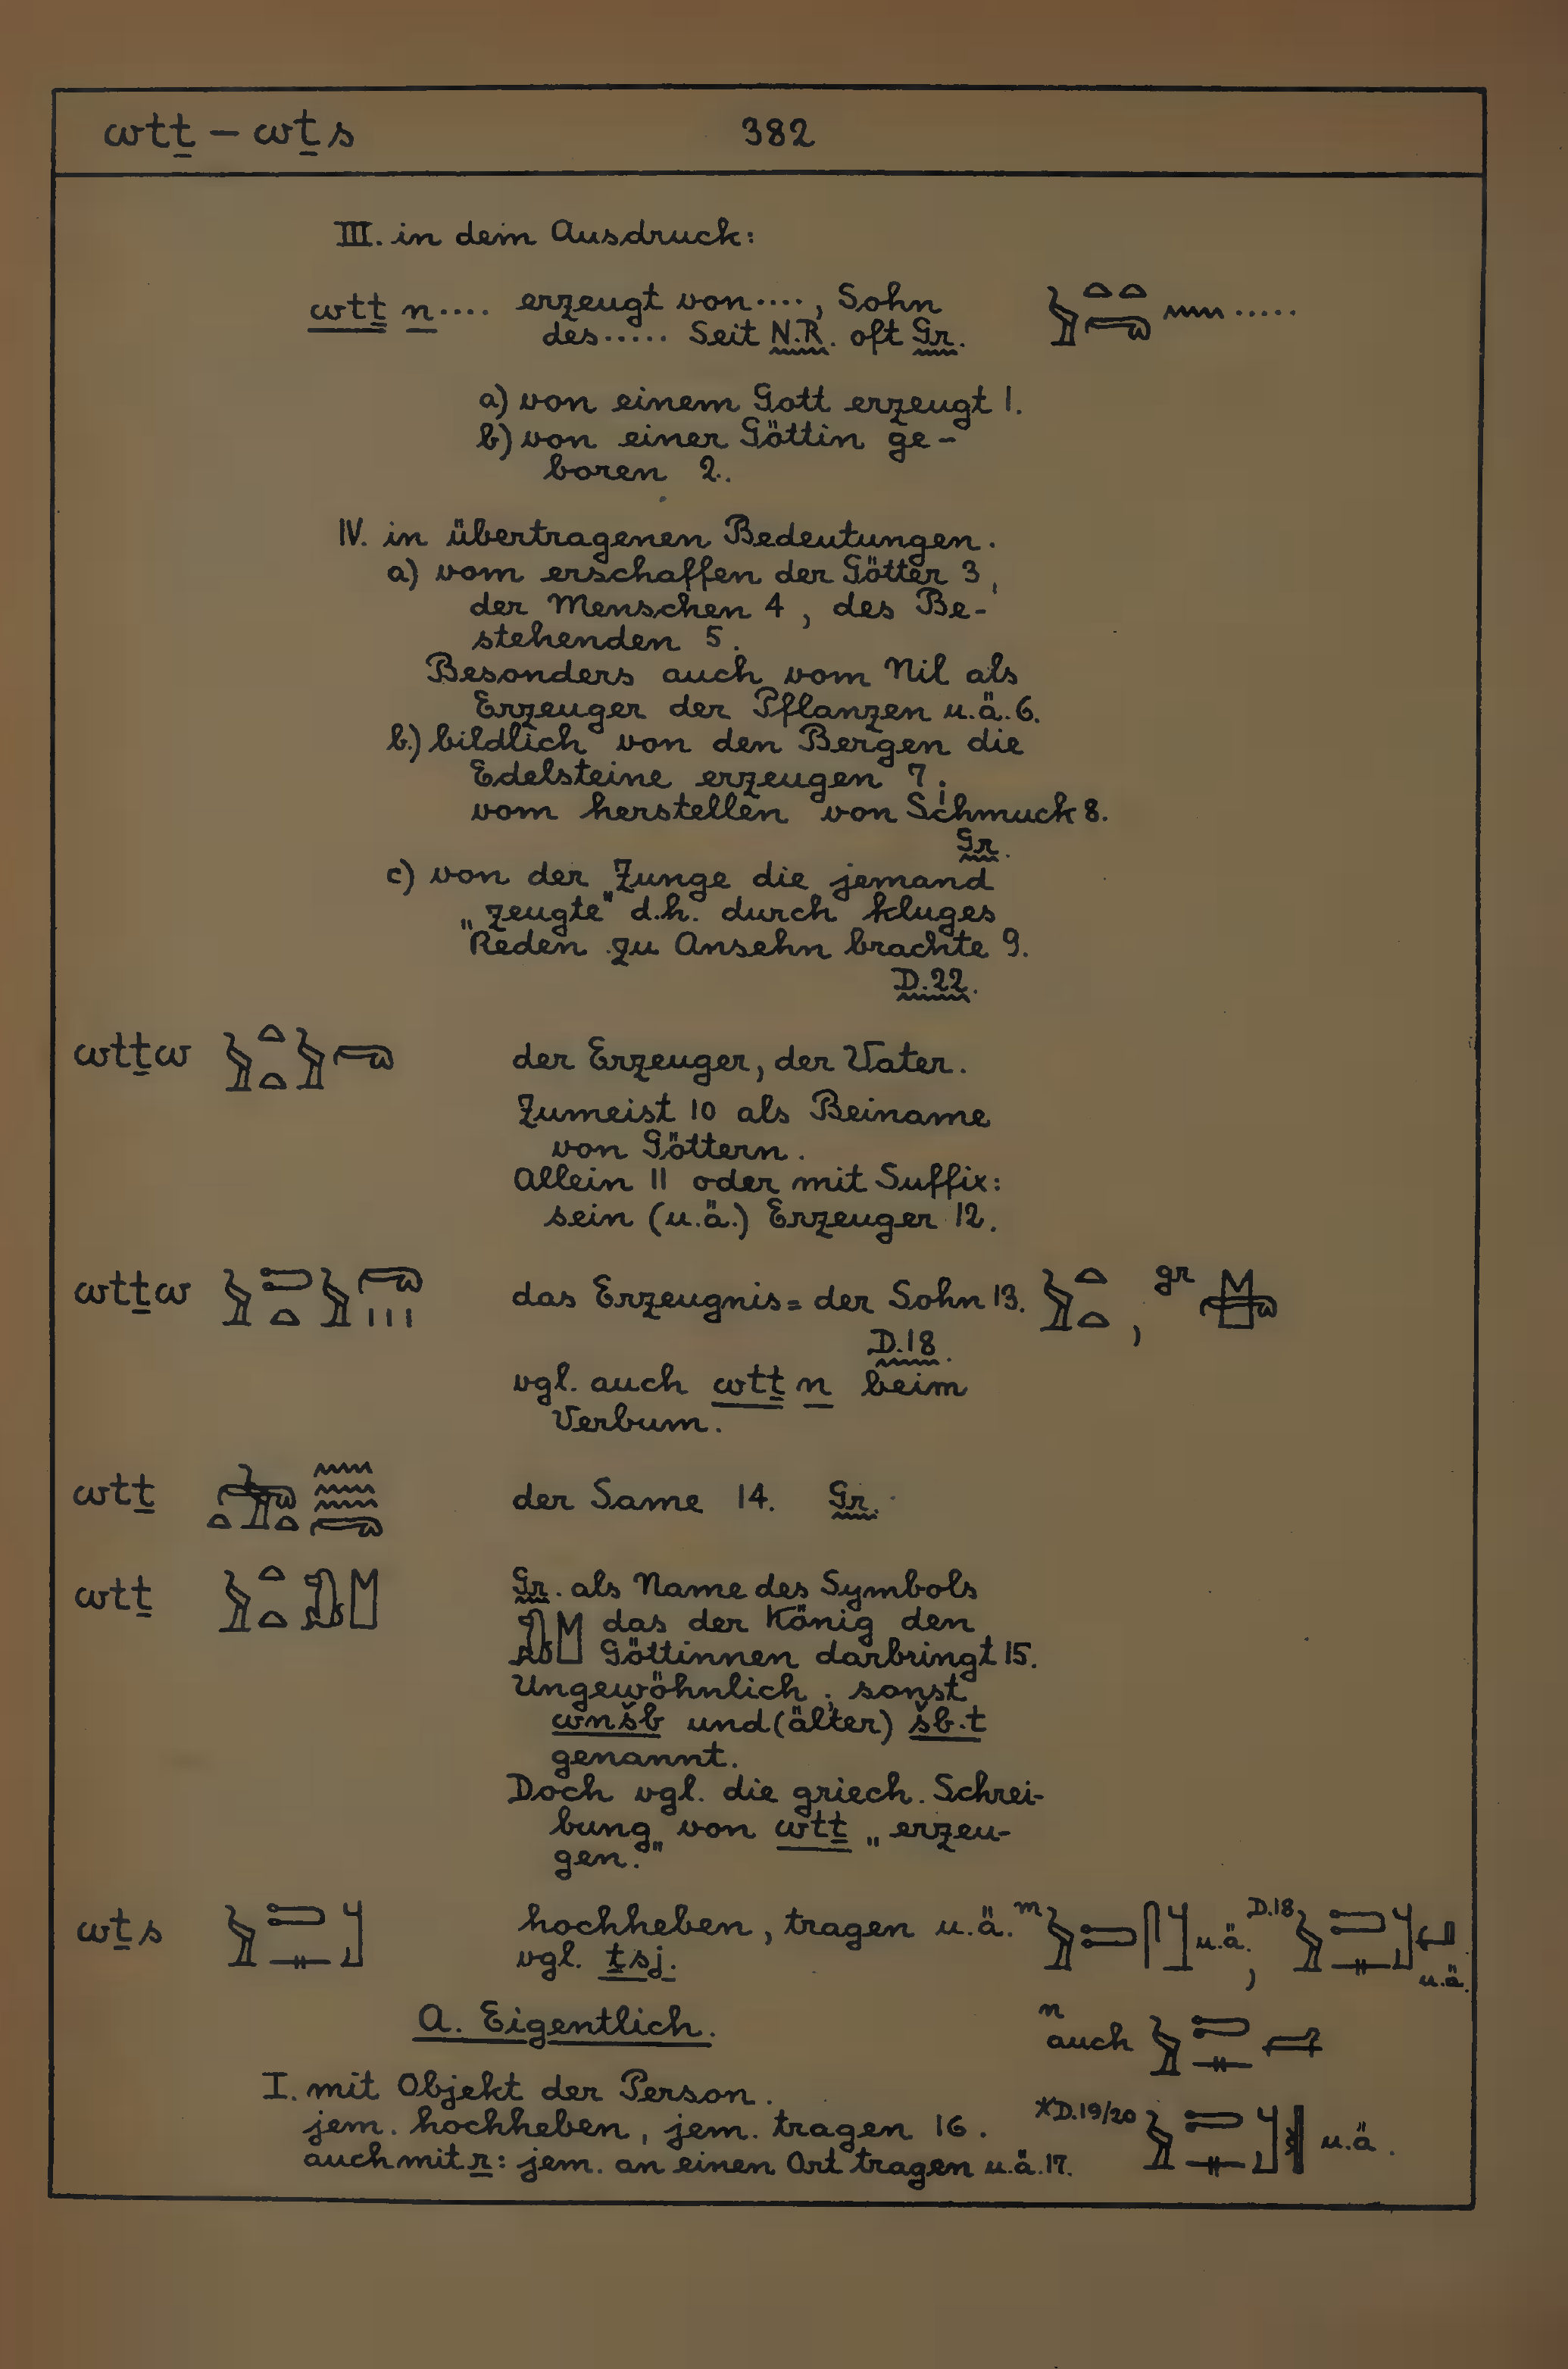 wtṯ – wṯs 382
III. in dem Ausdruck:
wtṯ n.... erzeugt von...., Sohn
des..... Seit N.R. oft Gr.
a) von einem Gott erzeugt 1.
b) von einer Göttin ge-
boren 2.
IV. in übertragenen Bedeutungen.
a) vom erschaffen der Götter 3,
der Menschen 4, des Be-
stehenden 5.
Besonders auch vom Nil als
Erzeuger der Pflanzen u.ä. 6.
b.) bildlich von den Bergen die
Edelsteine erzeugen 7;
vom herstellen von Schmuck 8.
Gr.
c) von der Zunge die jemand
„zeugte“ d.h. durch kluges
Reden zu Ansehn brachte 9.
D.22.
wtṯw der Erzeuger, der Vater.
Zumeist 10 als Beiname
von Göttern.
Allein 11 oder mit Suffix:
sein (u.ä.) Erzeuger 12.
wtṯw das Erzeugnis = der Sohn 13. , gr
D.18.
vgl. auch wtṯ n beim
Verbum.
wtṯ der Same 14. Gr.
wtṯ Gr. als Name des Symbols
das der König den
Göttinnen darbringt 15.
Ungewöhnlich; sonst
wnšb und (älter) šb.t
genannt.
Doch vgl. die griech. Schrei-
bung von wtṯ „erzeu-
gen.“
wṯs hochheben, tragen u.ä. m u.ä., D.18 u.ä.
vgl. ṯsj.
A. Eigentlich. n auch
I. mit Objekt der Person.
jem. hochheben, jem. tragen 16. *D.19/20 u.ä.
auch mit r: jem. an einen Ort tragen u.ä. 17.